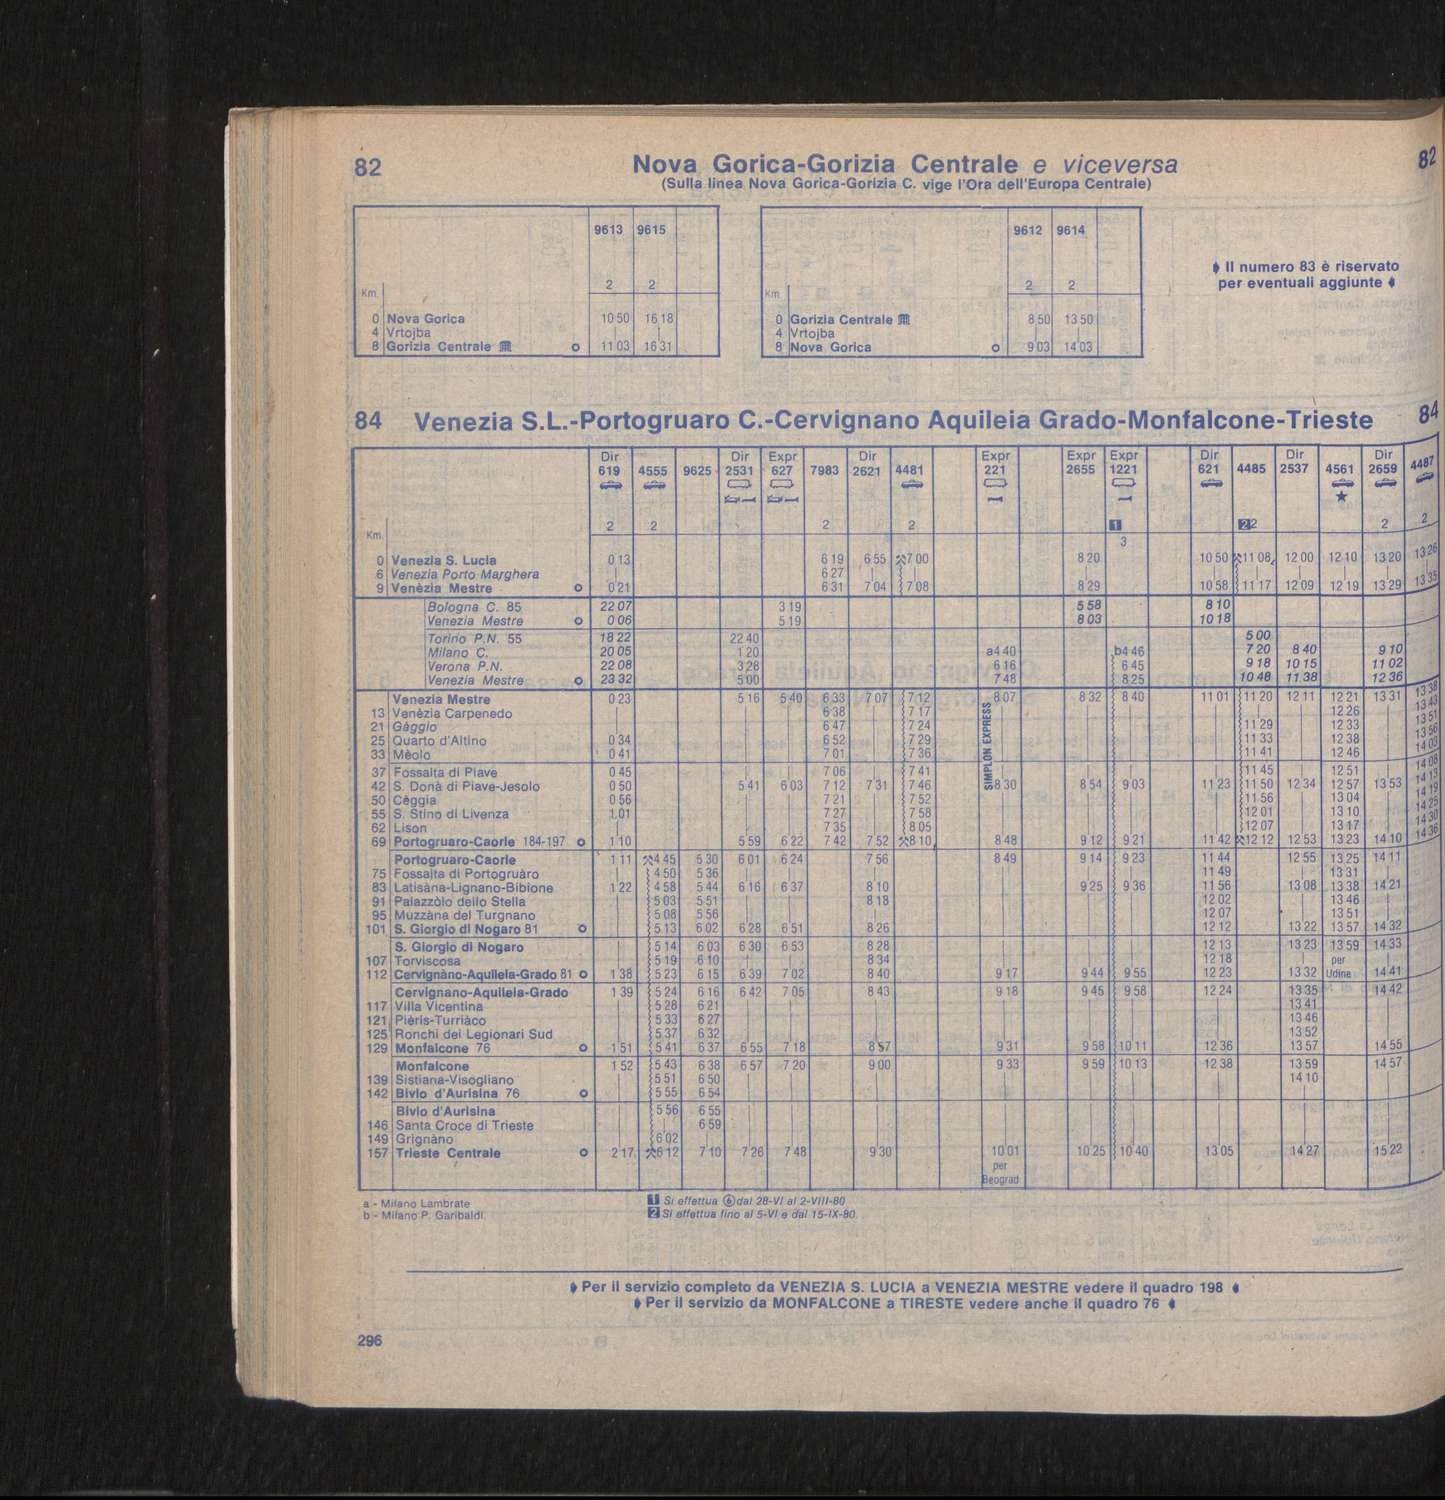 82 Nova Gorica-Gorizia Centrale e viceversa 82
(Sulla linea Nova Gorica-Gorizia C. vige l'Ora dell'Europa Centrale)
9613 9615
2 2
Km.
0 Nova Gorica 10 50 16 18
4 Vrtojba | |
8 Gorizia Centrale 11 03 16 31
9612 9614
2 2
Km.
0 Gorizia Centrale 8 50 13 50
4 Vrtojba | |
8 Nova Gorica 9 03 14 03
Il numero 83 è riservato
per eventuali aggiunte
84 Venezia S.L.-Portogruaro C.-Cervignano Aquileia Grado-Monfalcone-Trieste 84
Dir Dir Expr Dir Expr Expr Expr Dir Dir Dir
619 4555 9625 2531 627 7983 2621 4481 221 2655 1221 621 4485 2537 4561 2659 4487
★
2 2 2 2 1 2 2 2 2
Km. 3
0 Venezia S. Lucia 0 13 6 19 6 55 7 00 8 20 10 50 11 08 12 00 12 10 13 20 13 26
6 Venezia Porto Marghera 6 27
9 Venèzia Mestre 0 21 6 31 7 04 7 08 8 29 10 58 11 17 12 09 12 19 13 29 13 35
Bologna C. 85 22 07 3 19 5 58 8 10
Venezia Mestre 0 06 5 19 8 03 10 18
Torino P.N. 55 18 22 22 40 5 00
Milano C. 20 05 1 20 a4 40 b4 46 7 20 8 40 9 10
Verona P.N. 22 08 3 28 6 16 6 45 9 18 10 15 11 02
Venezia Mestre 23 32 5 00 7 48 8 25 10 48 11 38 12 36
Venezia Mestre 0 23 5 16 5 40 6 33 7 07 7 12 8 07 8 32 8 40 11 01 11 20 12 11 12 21 13 31 13 38
13 Venèzia Carpenedo 6 38 7 17 12 26 13 43
21 Gàggio 6 47 7 24 11 29 12 33 13 51
25 Quarto d'Altino 0 34 6 52 7 29 11 33 12 38 13 56
33 Mèolo 0 41 7 01 7 36 11 41 12 46 14 03
SIMPLON EXPRESS
37 Fossalta di Piave 0 45 7 06 7 41 11 45 12 51 14 08
42 S. Donà di Piave-Jesolo 0 50 5 41 6 03 7 12 7 31 7 46 8 30 8 54 9 03 11 23 11 50 12 34 12 57 13 53 14 13
50 Cèggia 0 56 7 21 7 52 11 56 13 04 14 19
55 S. Stino di Livenza 1 01 7 27 7 58 12 01 13 10 14 25
62 Lison 7 35 8 05 12 07 13 17 14 30
69 Portogruaro-Caorle 184-197 1 10 5 59 6 22 7 42 7 52 8 10 8 48 9 12 9 21 11 42 12 12 12 53 13 23 14 10 14 36
Portogruaro-Caorle 1 11 4 45 5 30 6 01 6 24 7 56 8 49 9 14 9 23 11 44 12 55 13 25 14 11
75 Fossalta di Portogruàro 4 50 5 36 11 49 13 31
83 Latisàna-Lignano-Bibione 1 22 4 58 5 44 6 16 6 37 8 10 9 25 9 36 11 56 13 08 13 38 14 21
91 Palazzòlo dello Stella 5 03 5 51 8 18 12 02 13 46
95 Muzzàna del Turgnano 5 08 5 56 12 07 13 51
101 S. Giorgio di Nogaro 81 5 13 6 02 6 28 6 51 8 26 12 12 13 22 13 57 14 32
S. Giorgio di Nogaro 5 14 6 03 6 30 6 53 8 28 12 13 13 23 13 59 14 33
107 Torviscosa 5 19 6 10 8 34 12 18 per
112 Cervignàno-Aquileia-Grado 81 1 38 5 23 6 15 6 39 7 02 8 40 9 17 9 44 9 55 12 23 13 32 Udine 14 41
Cervignano-Aquileia-Grado 1 39 5 24 6 16 6 42 7 05 8 43 9 18 9 45 9 58 12 24 13 35 14 42
117 Villa Vicentina 5 28 6 21 13 41
121 Pièris-Turriàco 5 33 6 27 13 46
125 Ronchi dei Legionari Sud 5 37 6 32 13 52
129 Monfalcone 76 1 51 5 41 6 37 6 55 7 18 8 57 9 31 9 58 10 11 12 36 13 57 14 55
Monfalcone 1 52 5 43 6 38 6 57 7 20 9 00 9 33 9 59 10 13 12 38 13 59 14 57
139 Sistiana-Visogliano 5 51 6 50 14 10
142 Bivio d'Aurisina 76 5 55 6 54
Bivio d'Aurisina 5 56 6 55
146 Santa Croce di Trieste 6 59
149 Grignàno 6 02
157 Trieste Centrale 2 17 6 12 7 10 7 26 7 48 9 30 10 01 10 25 10 40 13 05 14 27 15 22
per
Beograd
a - Milano Lambrate
b - Milano P. Garibaldi.
1 Si effettua ⑥ dal 28-VI al 2-VIII-80
2 Si effettua fino al 5-VI e dal 15-IX-80.
Per il servizio completo da VENEZIA S. LUCIA a VENEZIA MESTRE vedere il quadro 198
Per il servizio da MONFALCONE a TIRESTE vedere anche il quadro 76
296